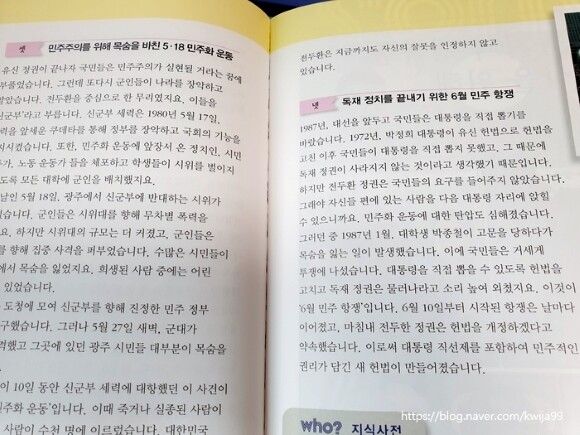 셋 민주주의를 위해 목숨을 바친 5·18 민주화 운동
유신 정권이 끝나자 국민들은 민주주의가 실현될 거라는 꿈에
부풀었습니다. 그런데 또다시 군인들이 나라를 장악하고
았습니다. 전두환을 중심으로 한 무리였지요. 이들을
신군부'라고 부릅니다. 신군부 세력은 1980년 5월 17일,
력을 앞세운 쿠데타를 통해 정부를 장악하고 국회의 기능을
지시켰습니다. 또한, 민주화 운동에 앞장서 온 정치인, 시민
가, 노동 운동가 들을 체포하고 학생들이 시위를 벌이지
도록 모든 대학에 군인을 배치했지요.
날인 5월 18일, 광주에서 신군부에 반대하는 시위가
졌습니다. 군인들은 시위대를 향해 무차별 폭력을
요. 하지만 시위대의 규모는 더 커졌고, 군인들은
를 향해 집중 사격을 퍼부었습니다. 수많은 시민들이
에서 목숨을 잃었지요. 희생된 사람 중에는 어린
있었습니다.
도청에 모여 신군부를 향해 진정한 민주 정부
구했습니다. 그러나 5월 27일 새벽, 군대가
격했고 그곳에 있던 광주 시민들 대부분이 목숨을
이 10일 동안 신군부 세력에 대항했던 이 사건이
주화 운동'입니다. 이때 죽거나 실종된 사람이
사람이 수천 명에 이르렀습니다. 대한민국
전두환은 지금까지도 자신의 잘못을 인정하지 않고
있습니다.
넷 독재 정치를 끝내기 위한 6월 민주 항쟁
1987년, 대선을 앞두고 국민들은 대통령을 직접 뽑기를
바랐습니다. 1972년, 박정희 대통령이 유신 헌법으로 헌법을
고친 이후 국민들이 대통령을 직접 뽑지 못했고, 그 때문에
독재 정치가 사라지지 않는 것이라고 생각했기 때문입니다.
하지만 전두환 정권은 국민들의 요구를 들어주지 않았습니다.
그래야 자신들 편에 있는 사람을 다음 대통령 자리에 앉힐
수 있으니까요. 민주화 운동에 대한 탄압도 심해졌습니다.
그러던 중 1987년 1월, 대학생 박종철이 고문을 당하다가
목숨을 잃는 일이 발생했습니다. 이에 국민들은 거세게
투쟁에 나섰습니다. 대통령을 직접 뽑을 수 있도록 헌법을
고치고 독재 정권은 물러나라고 소리 높여 외쳤지요. 이것이
'6월 민주 항쟁'입니다. 6월 10일부터 시작된 항쟁은 날마다
이어졌고, 마침내 전두환 정권은 헌법을 개정하겠다고
약속했습니다. 이로써 대통령 직선제를 포함하여 민주적인
권리가 담긴 새 헌법이 만들어졌습니다.
who? 지식사전
https://blog.naver.com/kwija99